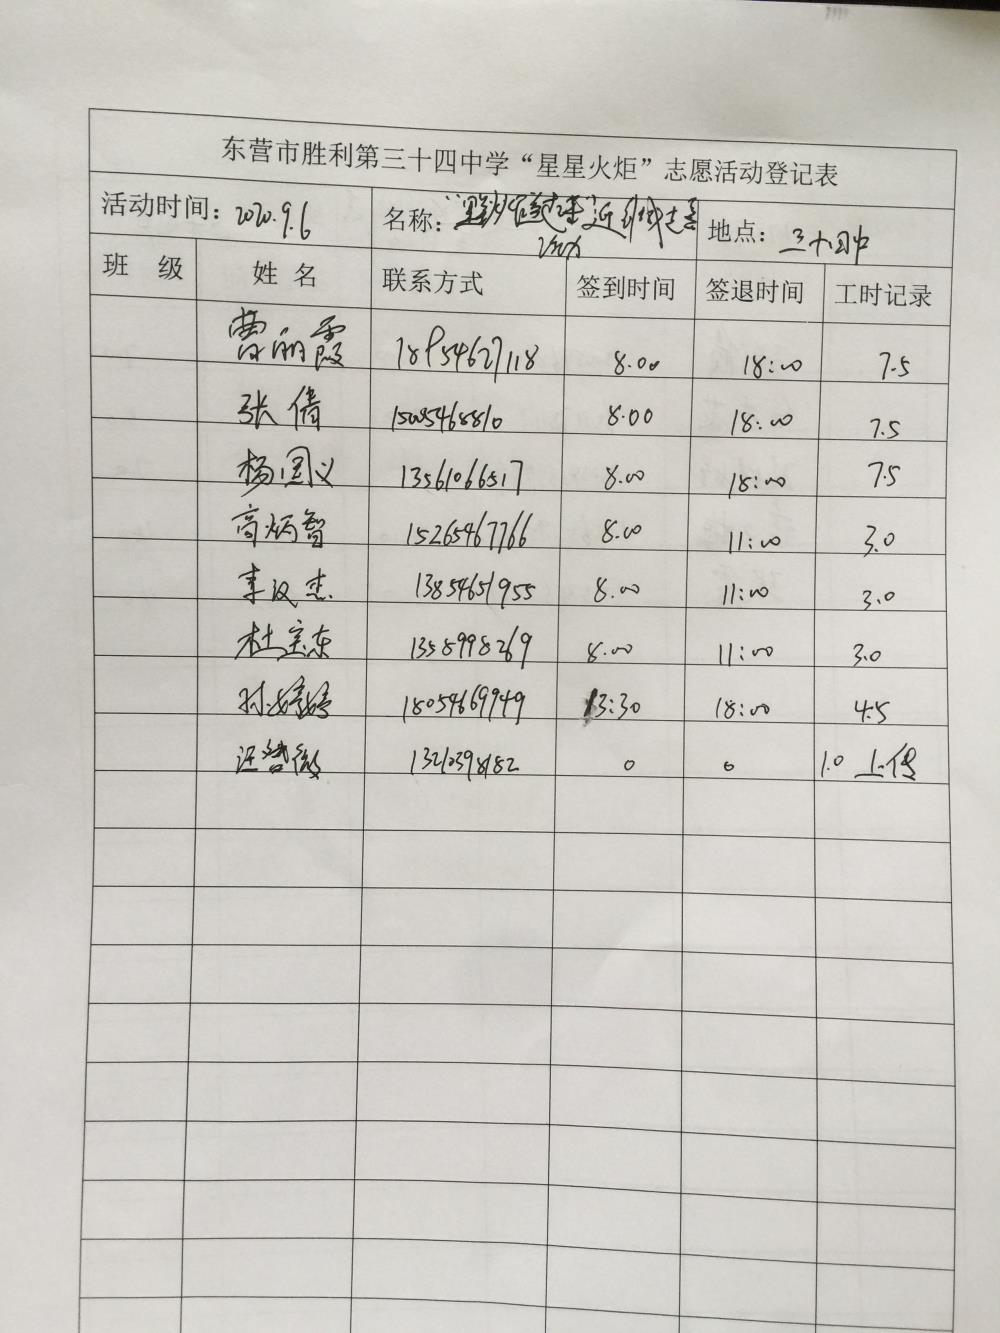 东营市胜利第三十四中学“星星火炬”志愿活动登记表
活动时间：2020.9.6 名称： 地点：三十四中
班 级 姓 名 联系方式 签到时间 签退时间 工时记录
曹丽霞 18954627118 8.00 18:00 7.5
张倩 15085468810 8.00 18:00 7.5
杨国义 13561066517 8.00 18:00 7.5
高炳智 15265467766 8.00 11:00 3.0
李汉杰 13854651955 8.00 11:00 3.0
杜宝东 13589998269 8.00 11:00 3.0
孙婷婷 18054669949 13:30 18:00 4.5
13210398182 0 0 1.0 上传